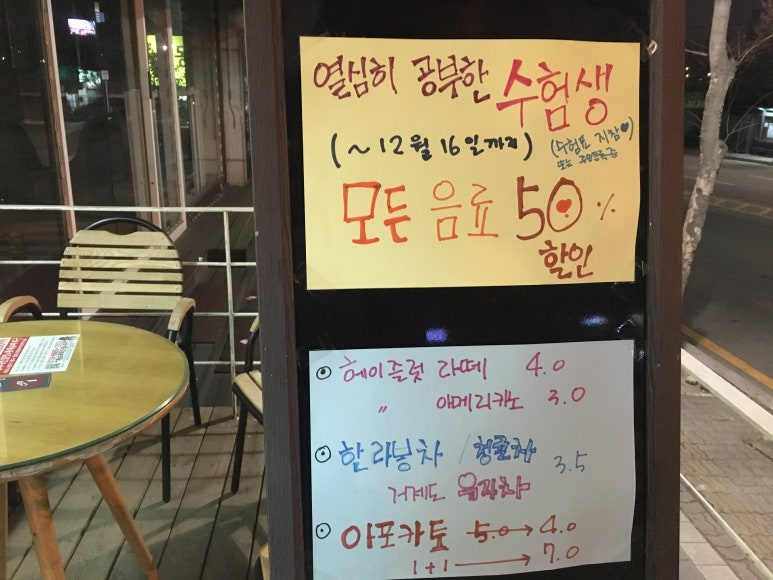 열심히 공부한 수험생
(~12월 16일까지)
(수험표 지참
또는
모든 음료 50%
할인
헤이즐럿 라떼 4.0
〃 아메리카노 3.0
한라봉차 / 청귤차 3.5
거제도 유자차
아포카토 5.0→4.0
1+1→7.0